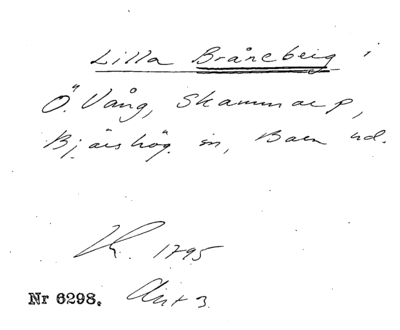 Lilla Bråneberg i
Ö. Vång, Skammarp,
Bjärshög sn, Bara hd.
1795
Nr 6298. Akt 3